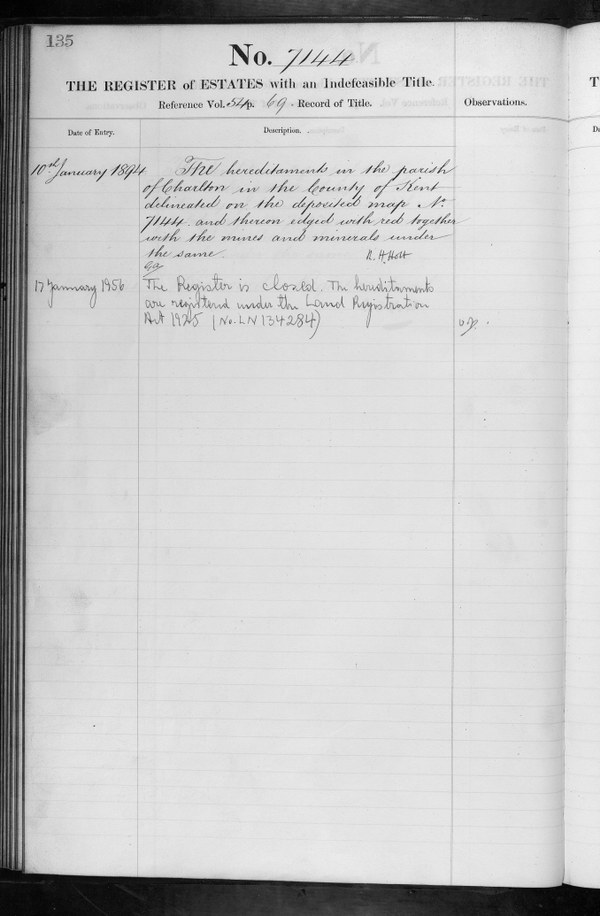 135
No. 7144
THE REGISTER of ESTATES with an Indefeasible Title.
Reference Vol. 54 p. 69. Record of Title.
Observations.
Date of Entry.
Description.
10th January 1894
The hereditaments in the parish
of Charlton in the County of Kent
delineated on the deposited map No.
7144 and thereon edged with red together
with the mines and minerals under
the same.
R. H. Holt
17 January 1956
The Register is closed. The hereditaments
are registered under the Land Registration
Act 1925 (No. LN 134284)